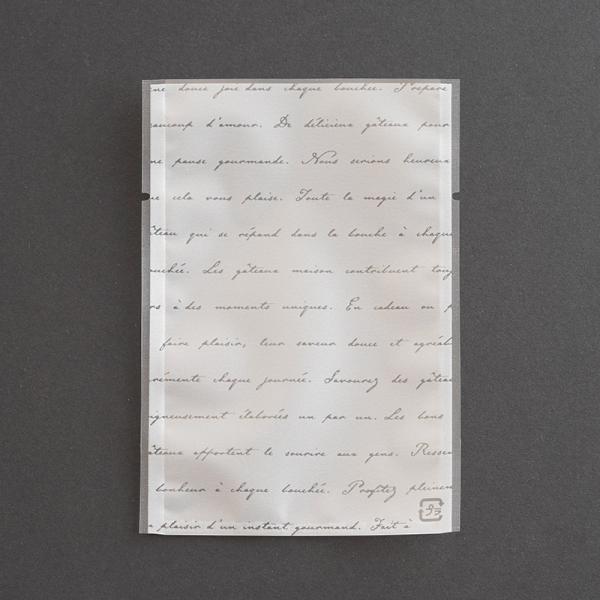 ne douce joie dans chaque bouchée. Prépare
aucoup d'amour. De délicieux gâteaux pour
ne pause gourmande. Nous serions heureux
e cela vous plaise. Toute la magie d'un
teau qui se répand dans la bouche à chaque
uchée. Les gâteaux maison contribuent touj
rs à des moments uniques. En cadeau ou p
faire plaisir, leur saveur douce et agréab
rémente chaque journée. Savourez des gâtea
igneusement élaborées un par un. Les bons
âteaux apportent le sourire aux gens. Ressen
bonheur à chaque bouchée. Profitez pleinem
e plaisir d'un instant gourmand. Fait à
プラ